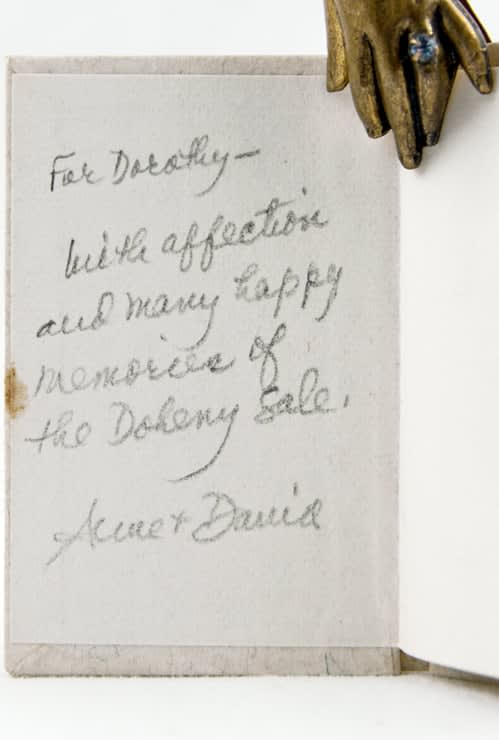 For Dorothy—
with affection
and many happy
memories of
the Doheny Sale.
Anne + David